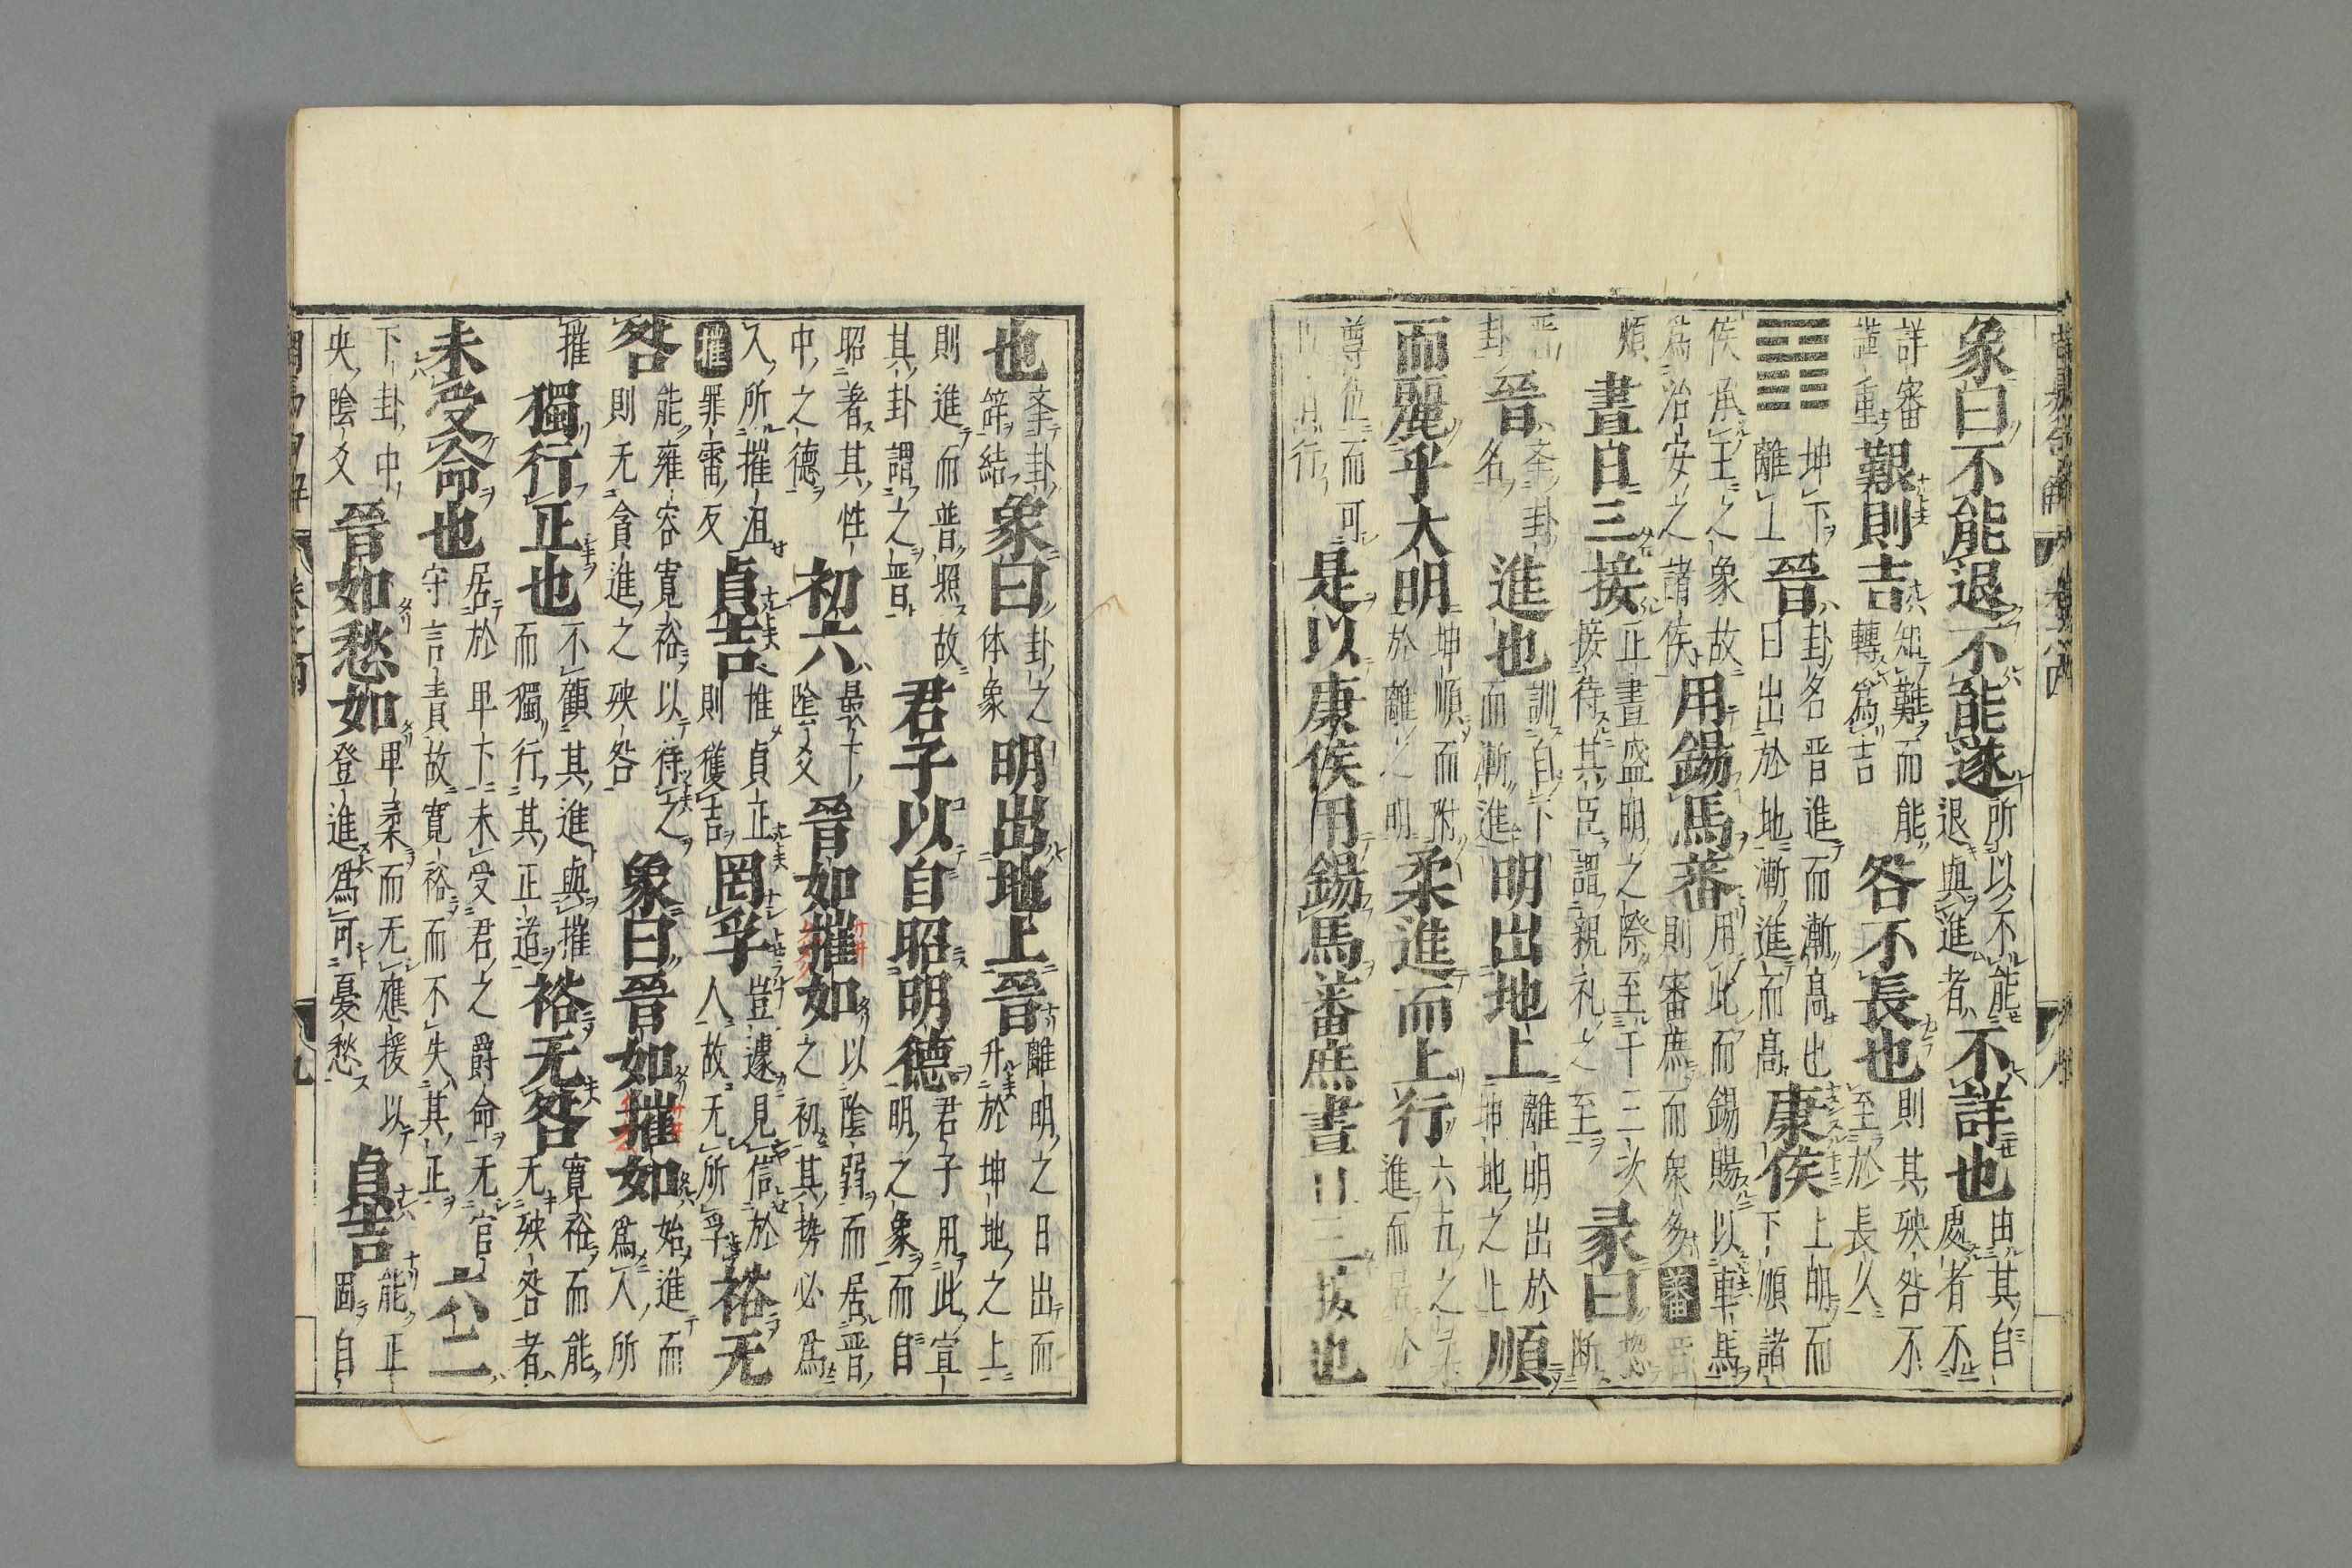 象曰不能退不能遂 所以不能退與進者 不詳也 由其自處者不
詳審 艱則吉 知難而能轉為吉 咎不長也 則其殃咎不至於長久
坤下離上 晉 卦名晉進而漸高也日出於地漸進而高 康侯 上明而下順諸
侯承王之象故為治安之諸侯 用錫馬蕃 用此而錫賜以車馬則審庶而衆多 蕃
煩 晝日三接 正晝盛明之際至于三次接待其臣謂親礼之至 彖曰 断
卦名 晉 進也 訓自下而漸進 明出地上 離明出於坤地之上 順
而麗乎大明 坤順而附於離之明 柔進而上行 六五之柔進而
尊位而可 行 是以康侯用錫馬蕃庶晝日三接也
也 结 象曰 卦之体象 明出地上晉 離明之日出而升於坤地之上
則進而普照故其卦謂之晋 君子以自昭明德 君子用此宣明之象而自
昭著其性中之德 初六 最下陰爻 晉如摧如 以陰弱而居晋之初其势必為
人所摧沮 摧 罪雷反 貞吉 惟貞正則獲吉 罔孚 豈遽見信於人故无所孚 裕无
咎 能雍容寬裕以待之則无貪進之殃咎 象曰晉如摧如 始進而為人所
摧 獨行正也 不顧其進與摧而獨行其正道 裕无咎 寬裕而能无殃咎者
未受命也 居於卑下未受君之爵命无官守言責故寬裕而不失其正 六二
下卦中央陰爻 晉如愁如 卑柔而无應援以登進為可憂愁 貞吉 能正固自